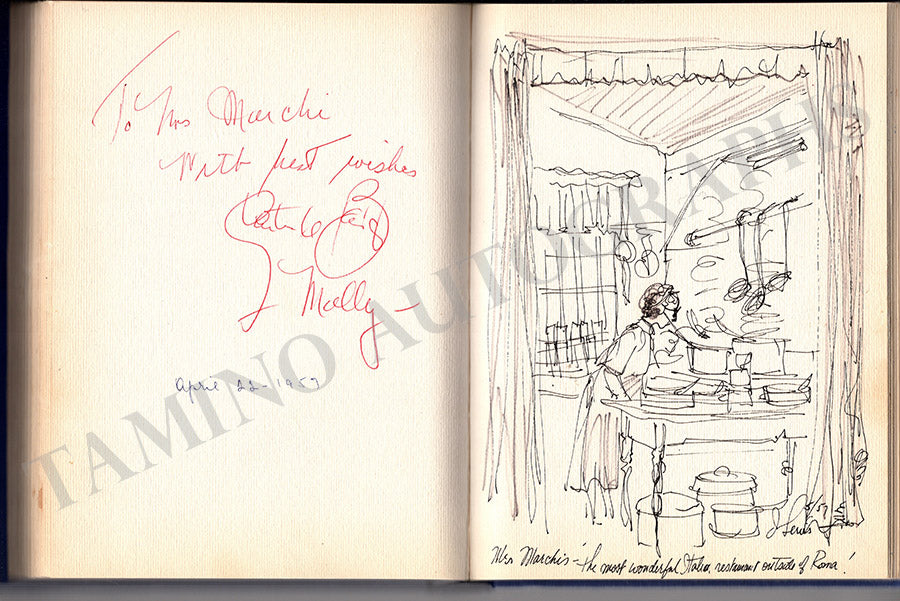 To Mrs Marchi
With best wishes
Gertrude Berg
Molly -
April 22 - 1957
5/57
Mrs Marchi's - "the most wonderful Italian restaurant outside of Roma!
TAMINO AUTOGRAPHS